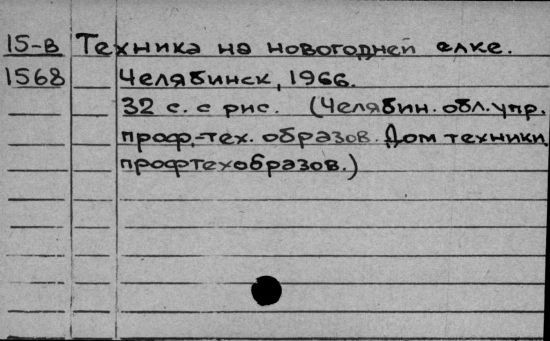 15-в Техника на новогодней елке.
1568 Челябинск, 1966.
32 с. с рис. (Челябин. обл. упр.
проф.-тех. образов. Дом техники
профтехобразов.)